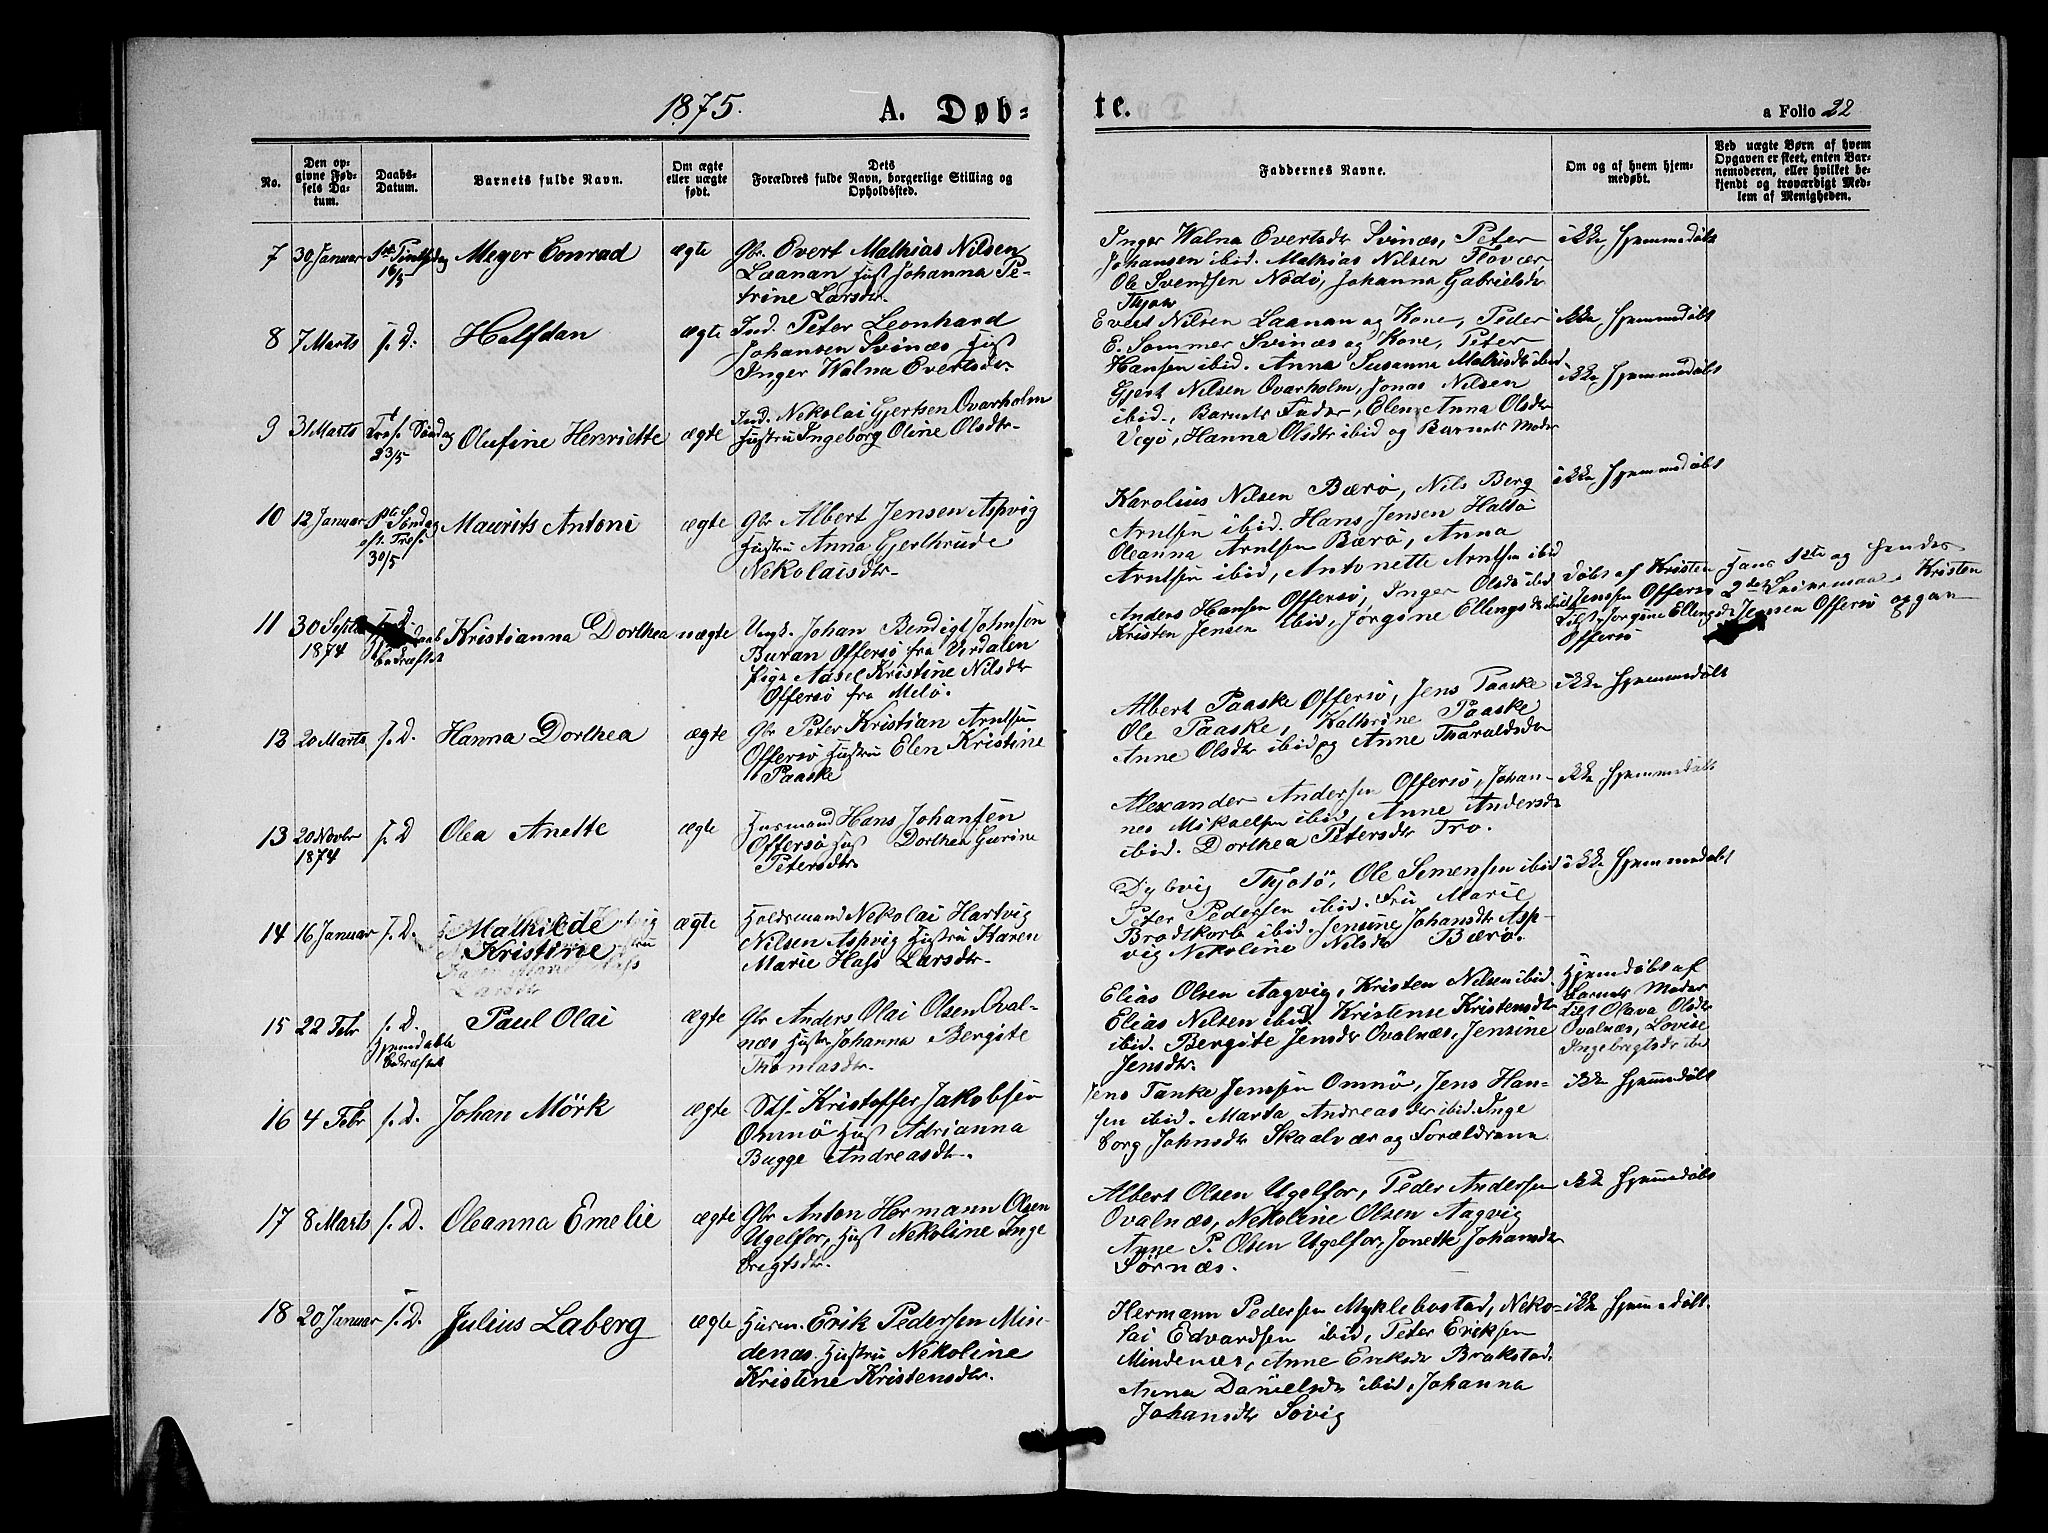 1875.
A. Døb-
te.
a Folio 22
No.
Den op-
givne Fød-
sels Da-
tum.
Daabs-
Datum.
Barnets fulde Navn.
Om ægte
eller uægte
født.
Dets
Forældres fulde Navn, borgerlige Stilling og
Opholdssted.
Faddernes Navne.
Om og af hvem hjem-
medøbt.
Ved uægte Børn af hvem
Opgaven er skeet, enten Bar-
nemoderen, eller hvilket be-
kjendt og troværdigt Med-
lem af Menigheden.
7 30 Januar 16/5 Meyer Conrad ægte
Gbr. Evert Mathias Nilsen
Laanan Hust Johanna Pe-
trine Larsdtr.
Inger Walna Evertsdtr Svinæs, Peter
Johansen ibid. Mathias Nilsen Flovær,
Ole Svendsen Nodø, Johanna Gabrielsdtr
Thjotø
ikke hjemmedøbt
8 7 Marts s. D. Halfdan ægte
Ind. Peter Leonhard
Johansen Svinæs Hust
Inger Walna Evertsdtr.
Evert Nilsen Laanan og Kone, Peder
E. Sommer Svinæs og Kone, Peter
Hansen ibid. Anna Susanna Mathisdtr ibid
ikke hjemmedøbt
9 31 Marts Tref. Søndag
23/5
Olufine Henriette ægte
Ind. Nekolai Gjertsen Ovarholm
Hustru Ingeborg Oline Olsdtr.
Gjert Nilsen Ovarholm, Jonas Nilsen
ibid., Barnets Fader, Elen Anna Olsdtr
Vegø, Hanna Olsdtr ibid og Barnets Moder
ikke hjemmedøbt
10 12 Januar 1ste Søndag
eft. Tref.
30/5
Maurits Antoni ægte
Gbr Albert Jensen Aspvig
Hustru Anna Gjerthrude
Nekolaisdtr.
Karolius Nilsen Bærø, Nils Berg
Arntsen ibid. Hans Jensen Haltø
Oleanna Arntsen Bærø, Anna
Arntsen ibid, Antonette Arntsen ibid
ikke hjemmedøbt
11 30 Septbr
1874
bekræftet
Kristianna Dorthea uægte
Ungk. Johan Bendigt Johnsen
Buran Offersø fra Verdalen
Pige Aasel Kristine Nilsdtr
Offersø fra Melø.
Anders Hansen Offersø, Inger Olsdtr ibid
Kristen Jensen ibid, Jørgine Ellingsdtr ibid
døbt af Kristen
Jensen Offersø
Tilst. Jorgine Ellingsdtr
Offersø
Hans 1ste og hendes
2det Leiermaal. Kristen
Jensen Offersø opgav
12 20 Marts s. D. Hanna Dorthea ægte
Gbr Peter Kristian Arntsen
Offersø Hustru Elen Kristine
Paaske
Albert Paaske Offersø, Jens Paaske
Ole Paaske, Kathrine Paaske
Anne Olsdtr ibid og Anne Tharaldsdtr
ikke hjemmedøbt
13 20 Novbr
1874
s. D Olea Anette ægte
Husmand Hans Johansen
Offersø Hust Dorthea Gurine
Petersdtr.
Alexander Andersen Offersø, Johan-
nes Mikaelsen ibid, Anne Andersdtr
ibid. Dorthea Petersdtr Tro.
ikke hjemmedøbt
14 16 Januar s. D. Mathilde
Kristine
ægte
Holdsmand Nekolai Hartvig
Nilsen Aspvig Hustru Karen
Marie Hass Larsdtr.
Dybvig Thjotø, Ole Simensen ibid
Peter Pedersen ibid. Fru Marie
Brodtkorb ibid. Jensine Johansdtr Asp-
vig Nekoline Nilsdtr Bærø.
ikke hjemmedøbt
15 22 Febr s. D.
Hjemmedaab
bekræftet
Paul Olai ægte
Gbr Anders Olai Olsen Oval-
næs Hustr Johanna Bergite
Thomasdtr.
Elias Olsen Aagvig, Kristen Nilsen ibid.
Elias Nilsen ibid. Kristense Kristensdtr
ibid. Bergite Jensdtr Ovalnæs, Jensine
Jensdtr.
Hjemdøbt af
Barnets Moder
Tilst Olava Olsdtr
Ovalnæs, Lovise
Ingebrigtsdtr ibid
16 4 Febr s. D. Johan Mörk ægte
Stf. Kristoffer Jakobsen
Omnö Hust Adrianna
Bugge Andreasdtr.
Jens Tanke Jenssen Omnø, Jens Han-
sen ibid. Marta Andreasdtr ibid. Inge
borg Johnsdtr Skaalvær og Forældrene
ikke hjemmedøbt
17 8 Marts s. D. Oleanna Emelie ægte
Gbr Anton Hermann Olsen
Ugelfor, Hust Nekoline Inge
brigtsdtr.
Albert Olsen Ugelfor, Peder Andersen
Ovalnæs, Nekoline Olsen Aagvig
Anne P. Olsen Ugelfor, Jonette Johansdtr
Sörnæs.
ikke hjemmedøbt
18 20 Januar s. D. Julius Laberg ægte
Husm. Erik Pedersen Min-
denæs. Hustru Nekoline
Kristine Kristensdtr.
Hermann Pedersen Myklebostad, Neko-
lai Edvardsen ibid, Peter Eriksen
Mindenæs, Anne Eriksdtr Brakstad.
Anna Danielsdtr ibid, Johanna
Johansdtr Sovig
ikke hjemmedøbt